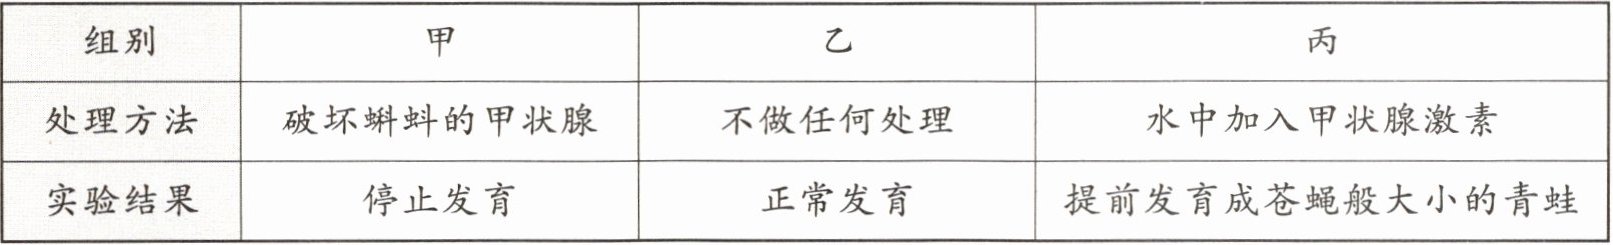 组别 甲 乙 丙
处理方法 破坏蝌蚪的甲状腺 不做任何处理 水中加入甲状腺激素
实验结果 停止发育 正常发育 提前发育成苍蝇般大小的青蛙